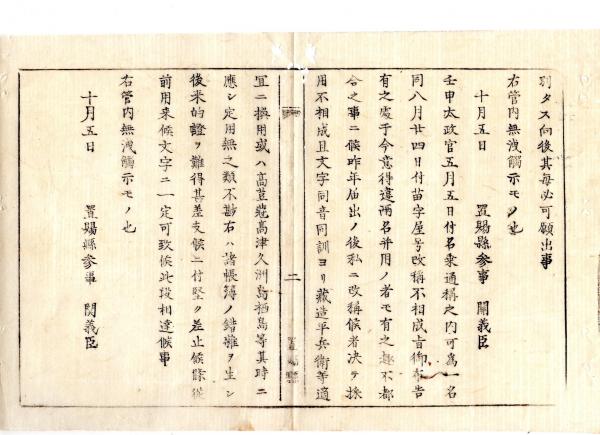 別タス向後其毎必可願出事
右管内無洩觸示モノ也
十月五日 置賜縣參事 關義臣
壬申太政官五月五日付名乘通稱之内可為一名
同八月廿四日付苗字屋号改稱不相成旨御布告
有之處于今意得違両名并用ノ者モ有之趣不都
合之事ニ候昨年届出ノ後私ニ改稱候者決テ採
用不相成且文字同音同訓ヨリ藏造平兵衛等適
宜ニ換用或ハ高豆蒄高津久洲島栖島等其時ニ
應シ定用無之類不尠右ハ諸帳簿ノ錯雜ヲ生シ
後来的證ヲ難得甚差支候ニ付堅ク差止候條従
前用来候文字ニ一定可致候此段相達候事
右管内無洩觸示モノ也
十月五日 置賜縣參事 関義臣
二
置賜縣